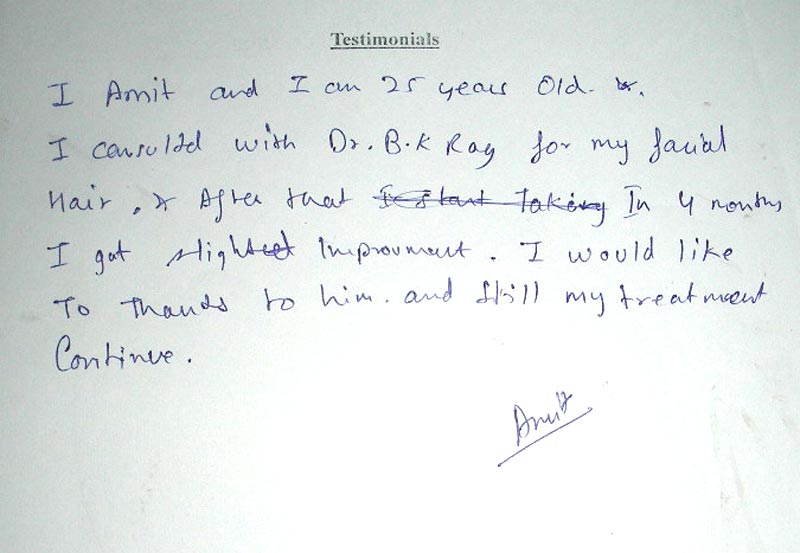 Testimonials
I Amit and I am 25 years old.
I consulted with Dr. B.K Ray for my facial
Hair, & After that In 4 months
I got slight Improvment. I would like
To thanks to him. and still my treatment
Continue.
Amit